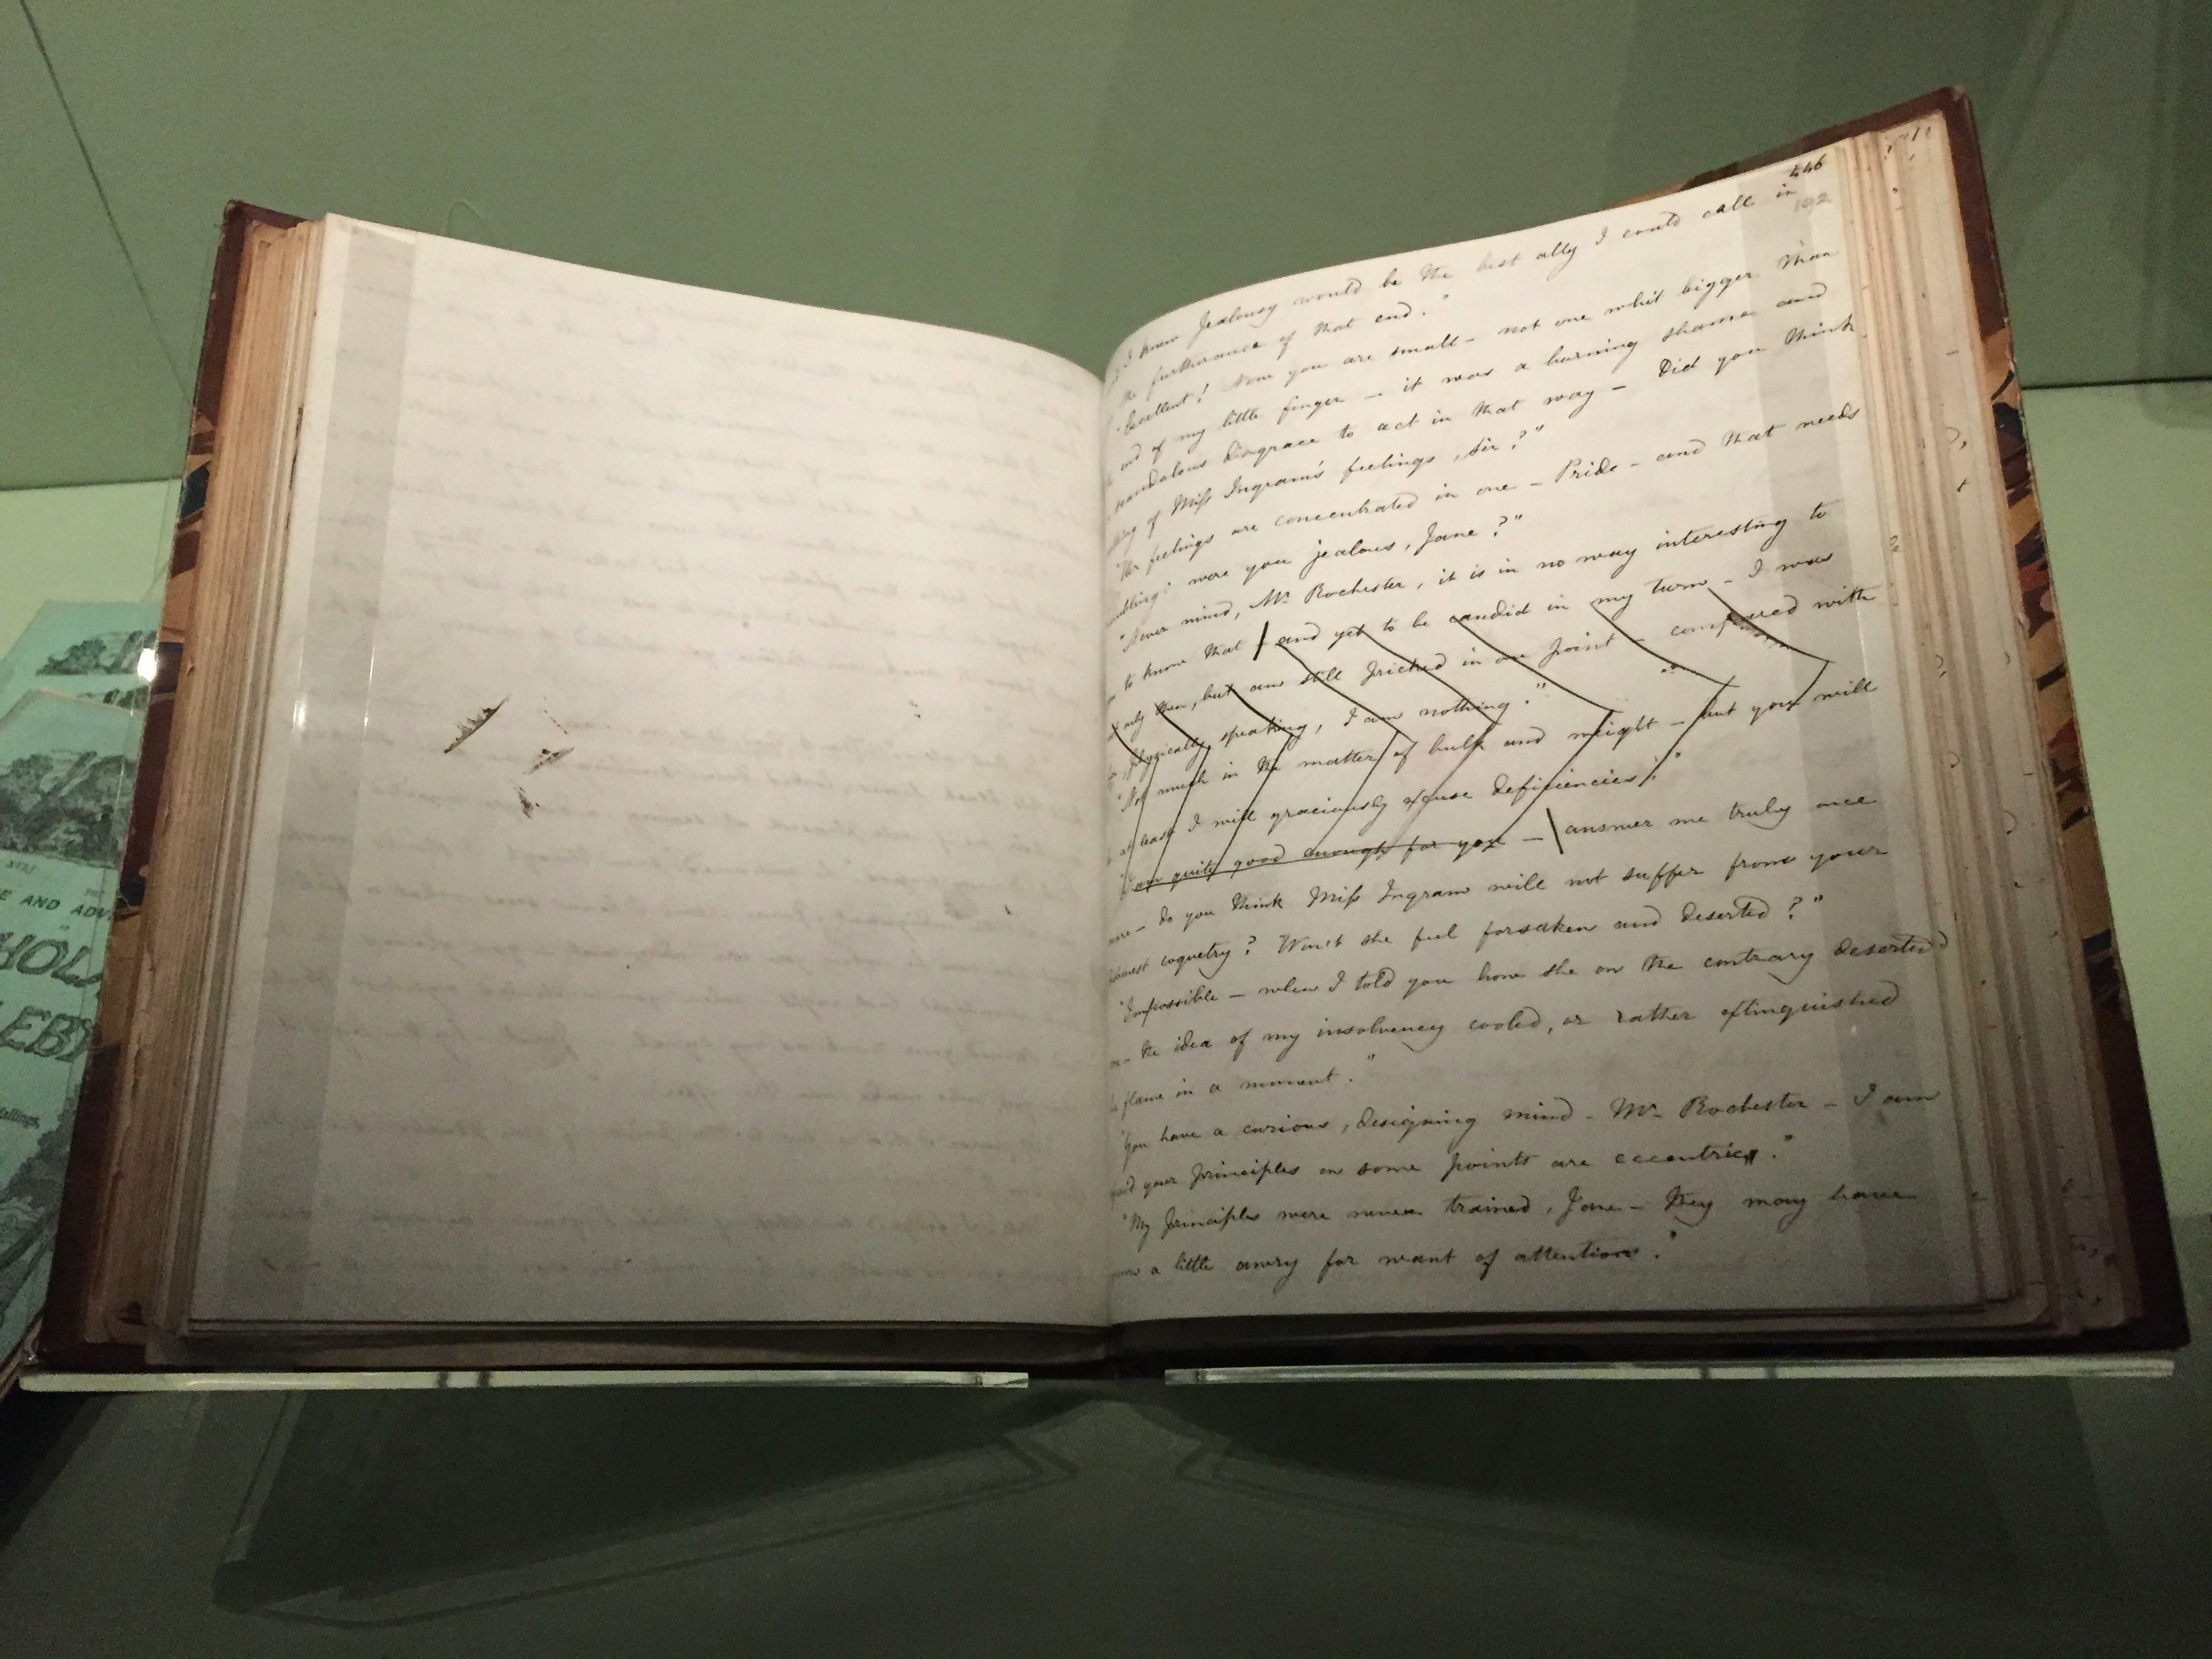 E AND ADV
HOL
EBY
allings
446
192
I knew Jealousy would be the best ally I could call in
the furtherance of that end."
"Excellent! Now you are small – not one whit bigger than
end of my little finger – it was a burning shame and
scandalous disgrace to act in that way – Did you think
of Miss Ingram's feelings, Sir?"
"Her feelings are concentrated in one – Pride – and that needs
were you jealous, Jane?"
"Never mind, Mr Rochester, it is in no way interesting to
to know that – and yet to be candid in my turn – I was
only then, but am still pricked in one point – compared with
physically speaking, I am nothing."
"Not much in the matter of bulk and weight – but you will
at least I will graciously excuse deficiencies."
am quite good enough for you – answer me truly once
more – do you think Miss Ingram will not suffer from your
coquetry? Won't she feel forsaken and deserted?"
"Impossible – when I told you how she on the contrary deserted
the idea of my insolvency cooled, or rather extinguished
flame in a moment."
"You have a curious, designing mind – Mr Rochester – I am
your principles on some points are eccentric."
"My principles were never trained, Jane – they may have
a little awry for want of attention."